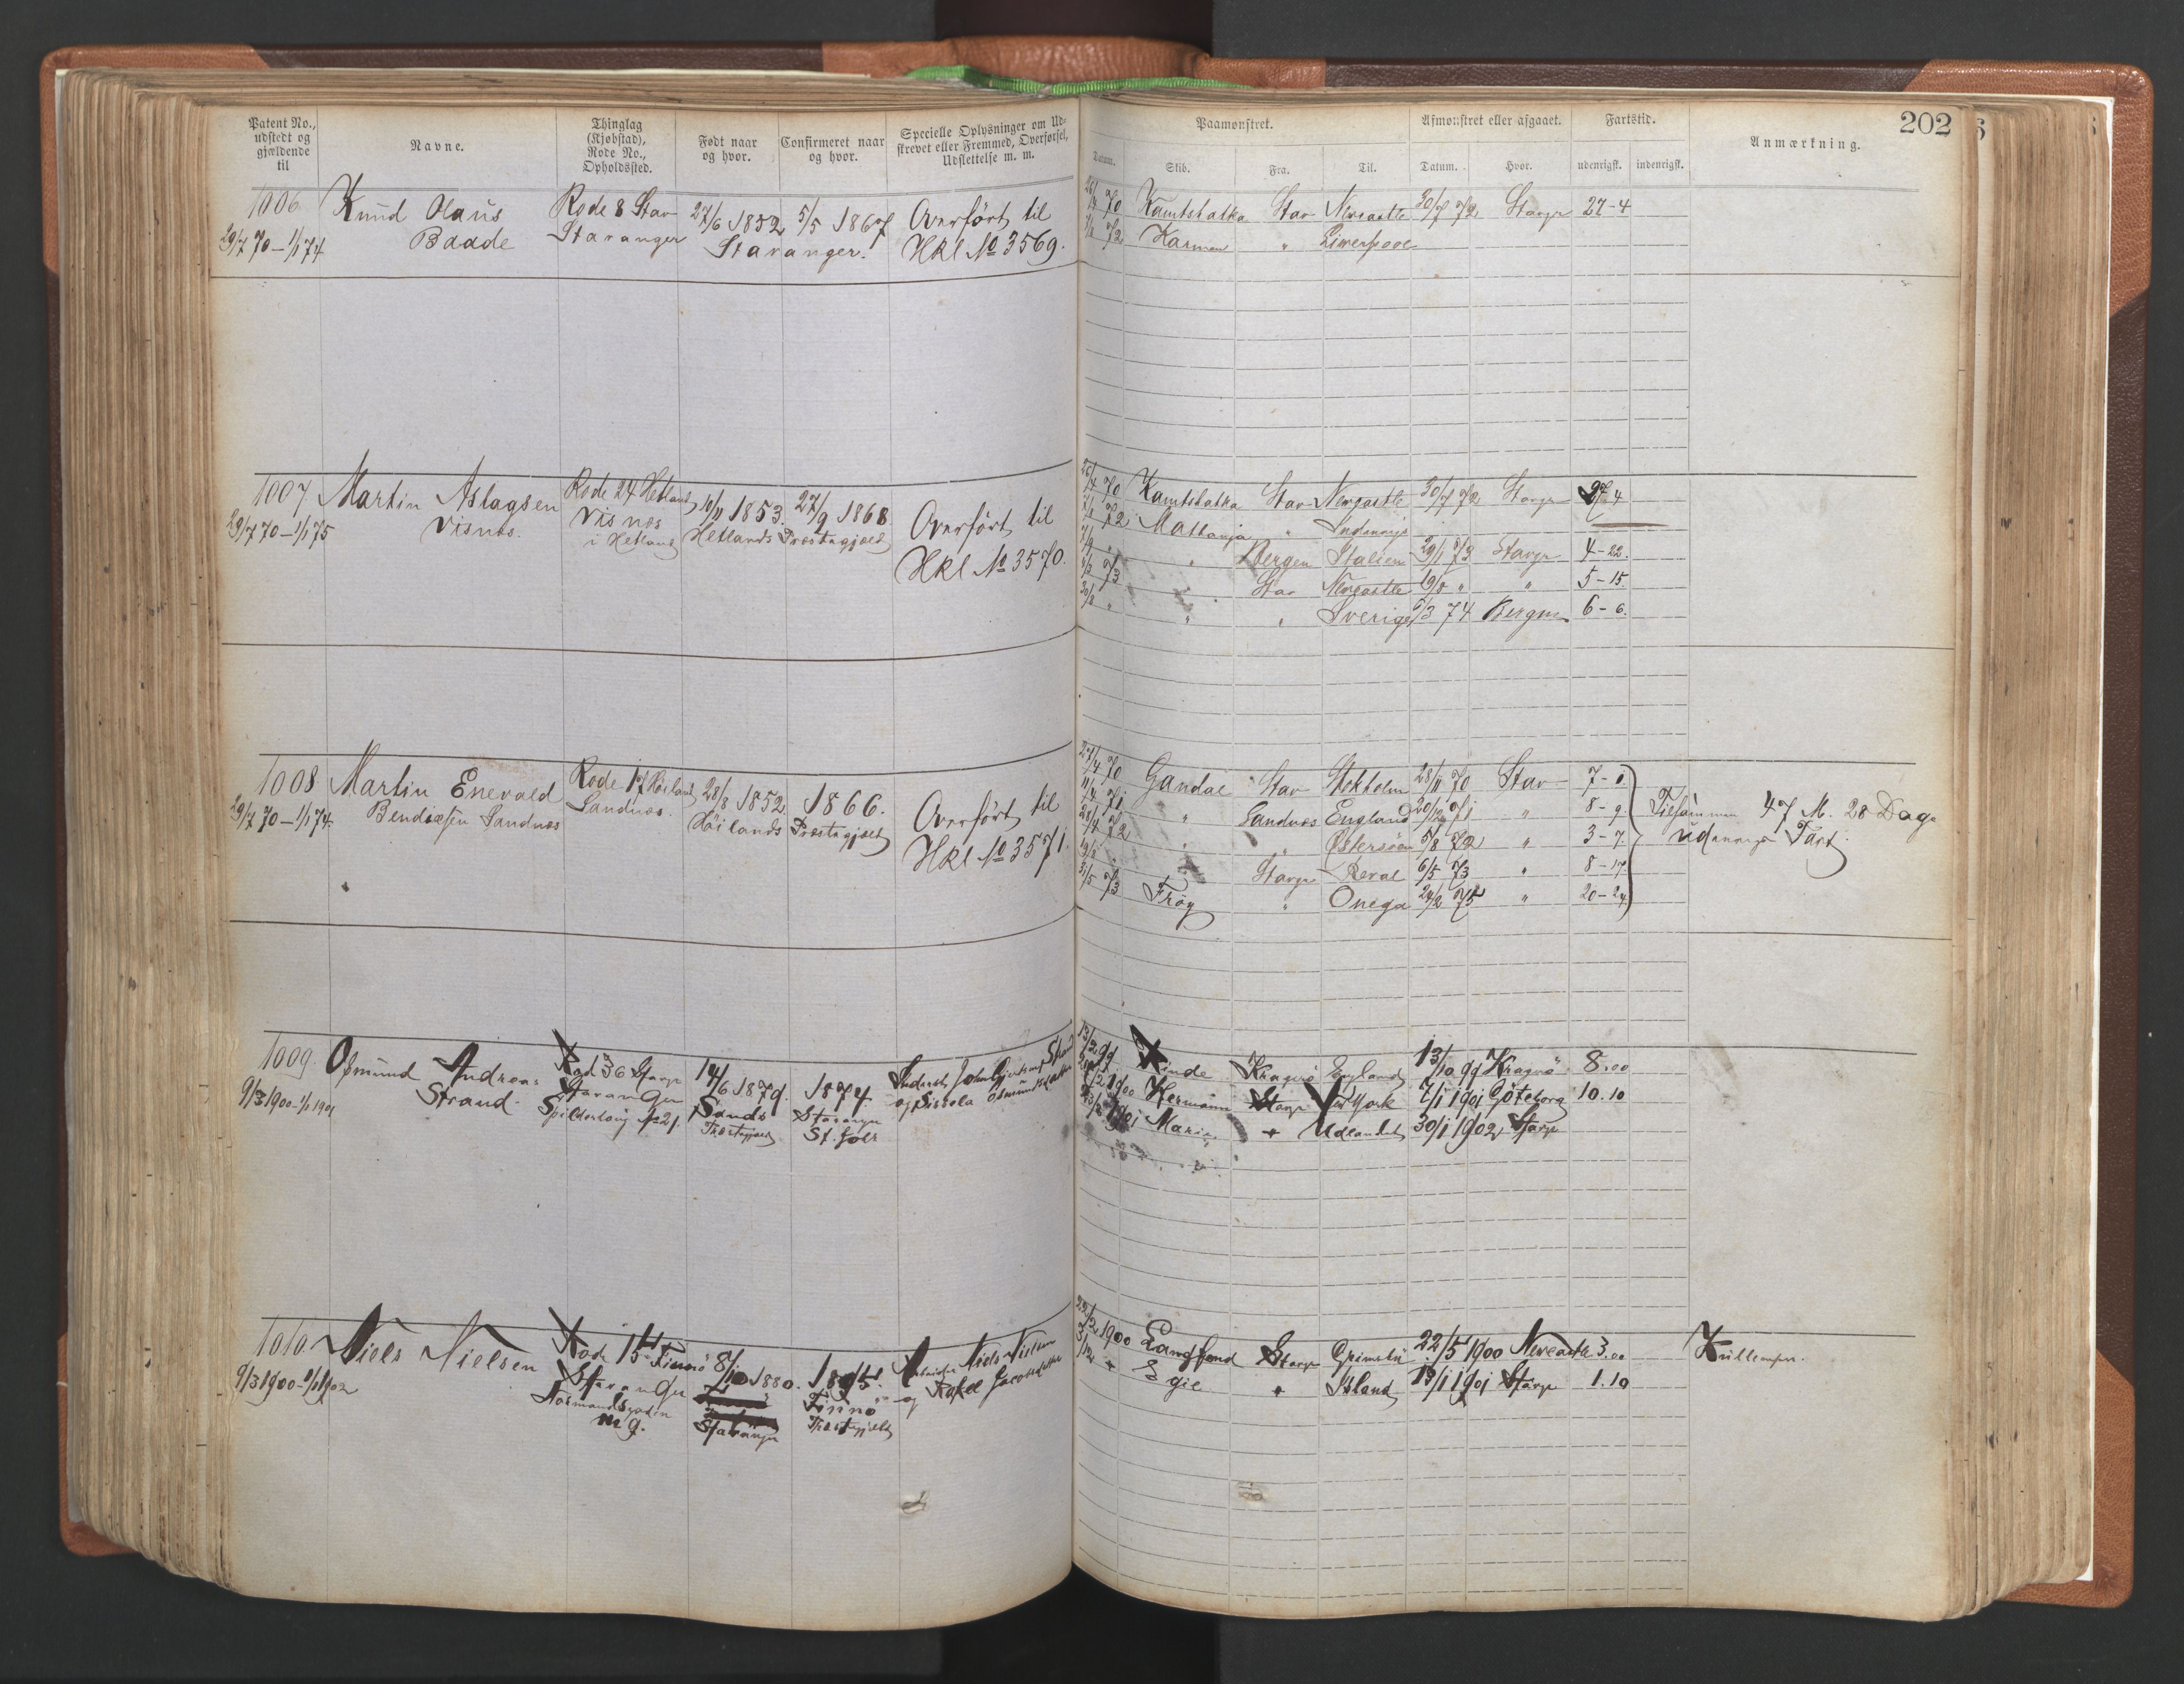 202
Patent No., udstedt og gjældende til
Navne.
Thinglag (Kjøbstad), Rode No., Opholdssted.
Født naar og hvor.
Confirmeret naar og hvor.
Specielle Oplysninger om Udskrevet eller Fremmed, Overførsel, Udslettelse m. m.
Paamønstret.
Afmønstret eller afgaaet.
Fartstid.
Anmærkning.
Datum. Skib. Fra. Til. Datum. Hvor. udenrigsk. indenrigsk.
1006 Knud Olaus Rode 8 Stav 27/6 1852 5/5 1867 Overfört til
29/7 70 – 1/1 74 Baade Stavanger Stavanger. Hkl No 3569.
70 Kamtskatka Stav Newcastle 30/7 72 Stavgr 27-4
72 Karmøe " Liverpool
1007 Martin Aslagsen Rode 24 Hetland 10/11 1853. 27/9 1868 Overfört til
29/7 70 – 1/1 75 Visnæs. Visnæs Hetlands Præstegjæld Hkl No 3570.
i Hetland
70 Kamtskatka Stav Newcastle 30/7 72 Stavgr 27 4
72 Mattanja " Indenrigs
" Bergen Italien 29/1 73 Stavgr 4-22.
73 Stav Newcastle 19/8 " " 5-15
" " Sverige 5/3 74 Bergen 6-6.
1008 Martin Enevald Rode 17 Höiland 28/8 1852 1866. Overfört til
29/7 70 – 1/1 74. Bendixsen Sandnæs Sandnæs. Höilands Præstegjæld Hkl No 3571.
27/4 70 Gandal Stav Stokholm 28/11 70 Stav 7-1
11/4 71 " Sandnæs England 20/12 71 " 8-9 Tilsammen 47 M. 28 Dage
72 " Østersöen 5/8 72 " 3-7. udenrigs Fart.
Stavgr Reval 6/5 73 " 8-17.
31/5 73 Fröy " Onega 24/2 75 " 20-24.
1009. Osmund Andreas Rode 36 Stavgr 14/6 1879. 1894
9/3 1900 – 1/1 1901 Strand. Stavanger Sands Stavanger og Sissela Osmundsdatter
No 21. Præstegjæld St. Joh
13/2 99 Kragerö England 13/10 99 Kragerö 8.00
1900 Hermann Stavgr New York 7/1 1901 Göteborg 10.10
1901 Maria " Udlandet 30/1 1902 Stavgr
1010. Niels Nielsen Rode 15 Finnö 8/10 1880. 1895. Niels Nielsen
9/3 1900 – 1/1 1902 Stavanger Finnö og Rakel Jacobsdatter
Normandsgaden Stavanger Præstegjæld
m 9.
22/2 1900 Langfond Stavgr Grimsby 22/5 1900 Newcastle 3.00 Kullemper.
Egil " Island 13/1 1901 Stavgr 1.10